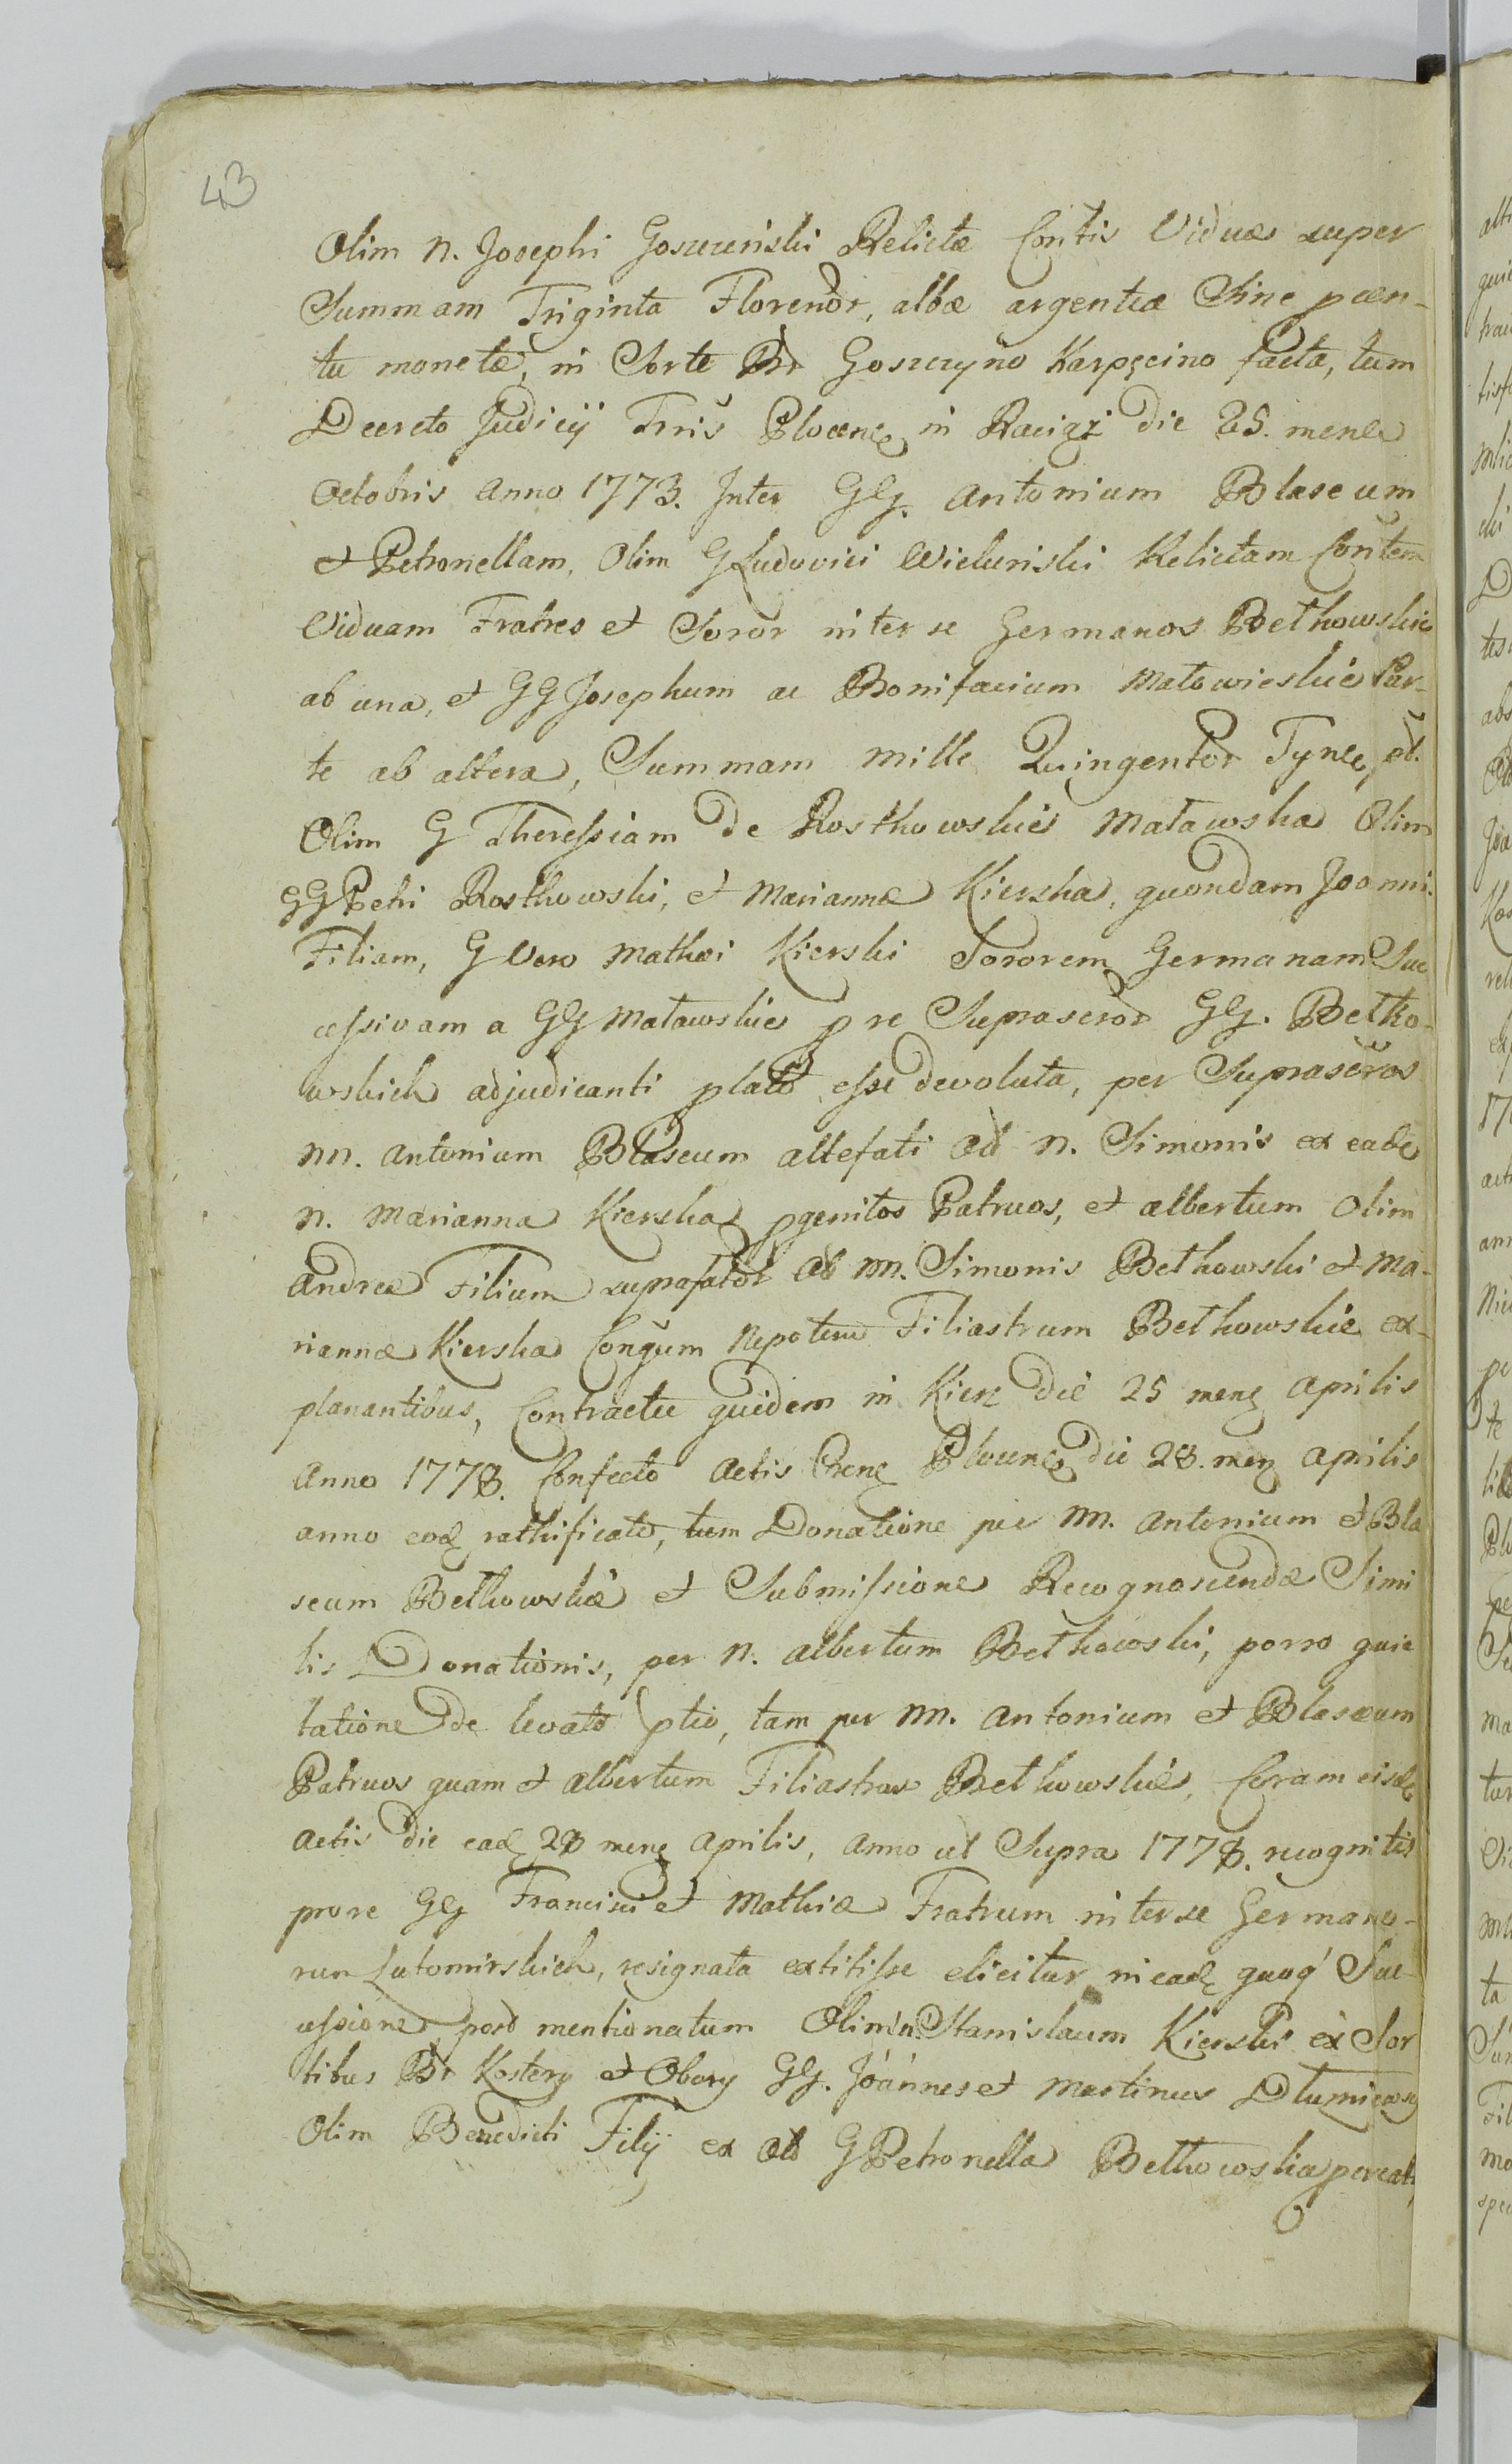 43
Olim N. Josephi Goszczyński Relictæ Contis Viduæ super
Summam Triginta Florenor, albæ argenteæ Sine pcen-
tu monetæ, in Sorte Br Goszczyno Karpęcino facta, tum
Decreto Judicij Trris Plocenς in Raciąż die 25. mense
Octobris Anno 1773. Inter GG. Antonium Blaseum
et Petronellam, Olim G Ludovici Wieluński Relictam Contem
Viduam Fratres et Soror inter se Germanos Bethowskie
ab una, et GG Josephum ac Bonifacium Matowieskie Par-
te ab altera, Summam mille Quingentor Tynς, ad.
Olim G Theressiam de Rosthowskie Matawska Olim
GG Petri Rosthowski, et Mariannæ Kierska, quondam Joanni.
Filiam, G Vero Mathæi Kierski Sororem Germanam Suc
cessivam a GG Matawskie p re Suprascror GG. Betko-
wskich adjudicanti plato esse devoluta, per Suprascros
NN. Antonium Blaseum altefati Od N. Simonis ex eade
N. Marianna Kierska pgenitos Patruos, et Albertum Olim
Andreæ Filium suprafator Od NN. Simonis Bethowski et Ma-
riannæ Kierska Congum Nepotem Filiastrum Bethowskie ex-
planantibus, Contractu quidem in Kierz die 25 menς Aprilis
Anno 1778. Confecto Actis Crenς Plocenς die 28. menς Aprilis
anno eodς rathificato, tum Donatione per NN. Antonium et Bla
seum Bethowskie et Submissione Recognoscendæ Simi
lis Donationis, per N. Albertum Bethowski, porro quie
tatione de levato ptio, tam per NN. Antonium et Blaseum
Patruos quam et Albertum Filiastros Bethowskie, Coram eisdς
Actis die eadς 28 menς Aprilis, Anno ut Supra 1778. recognitis
pro re GG Francisci et Mathiæ Fratrum inter se Germano-
rum Lutomirskich, resignata extitisse elicitur in eadς quoq' Suc-
cessione post mentionatum Olim N. Stanislaum Kierski ex Sor
tibus Br Kostery et Obory GG. Joannes et Martinus Dłumiewscy
Olim Benedicti Filij ex Od G Petronella Bethowska pcreati